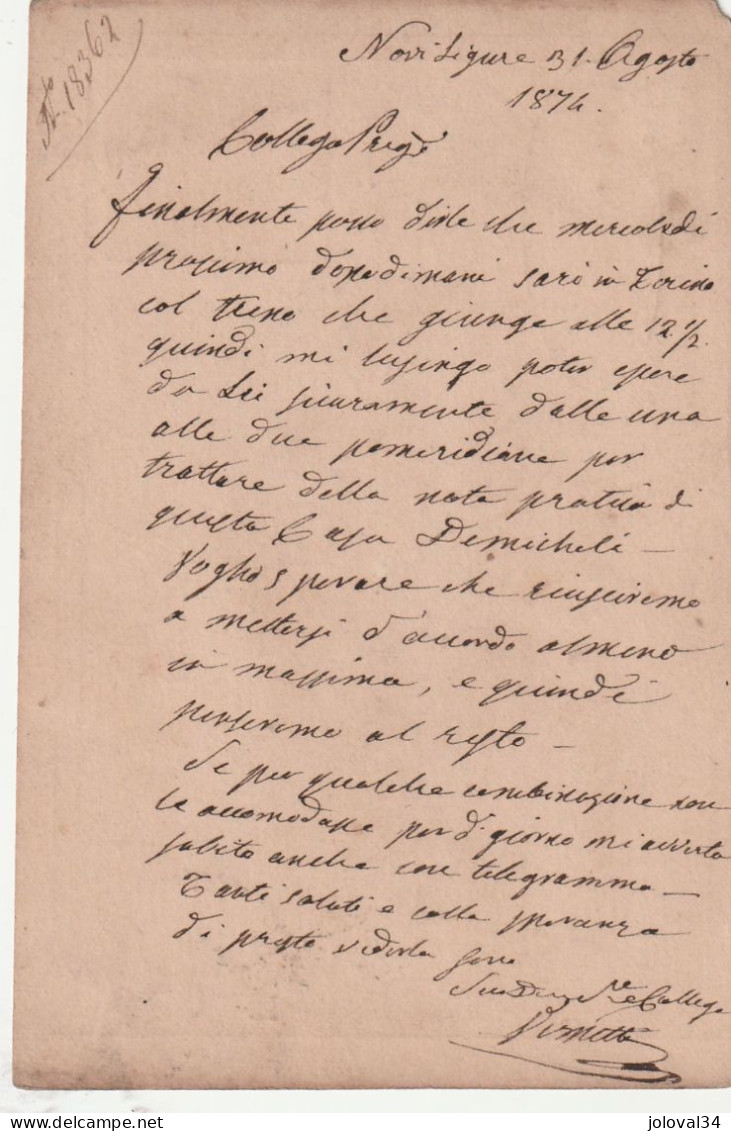 No. 18362
Novi Ligure 31 Agosto
1874.
Collega Pregio
finalmente posso dirle che mercoledì
prossimo dopodimani sarò in Torino
col treno che giunge alle 12 1/2.
quindi mi lusingo poter essere
da Lei sicuramente dalle una
alle due pomeridiane per
trattare della nota pratica di
questa Casa Demicheli –
Voglio sperare che riusciremo
a mettersi d'accordo almeno
in massima, e quindi
penseremo al resto –
Se per qualche combinazione non
le accomodasse per do giorno mi avverta
subito anche con telegramma –
Tanti saluti e colla speranza
di presto vederla sono
Suo Collega
joloval34